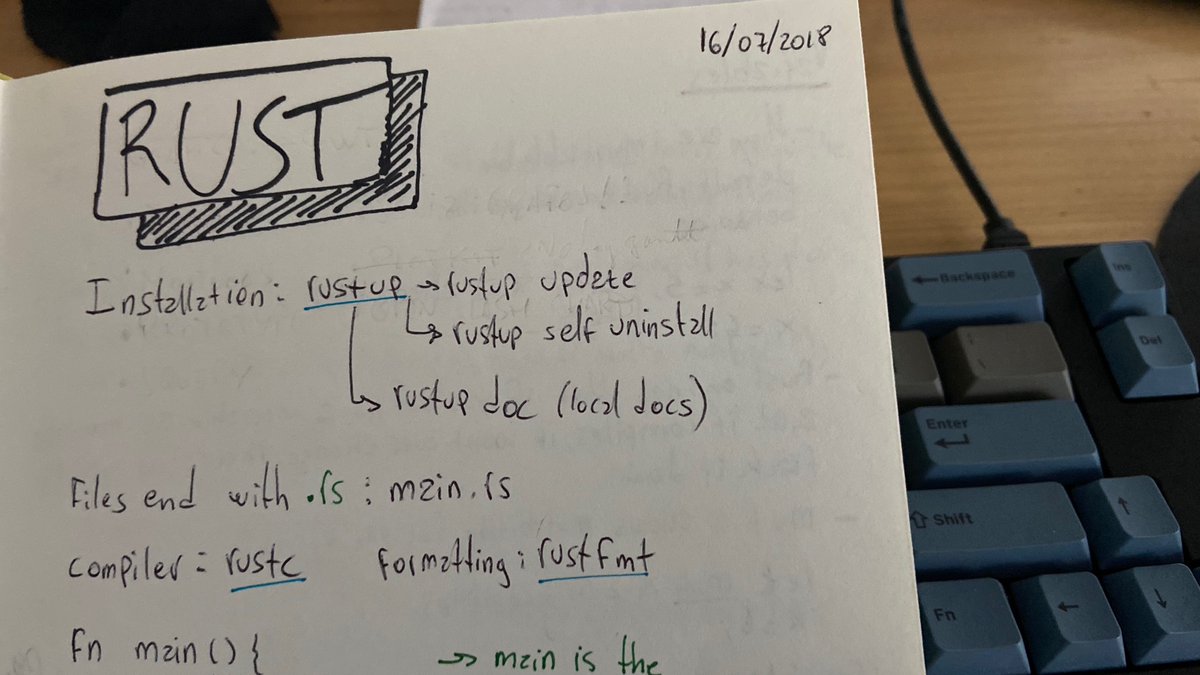 16/07/2018
RUST
Installation: rustup → rustup update
↳ rustup self uninstall
↳ rustup doc (local docs)
Files end with .rs : main.rs
compiler: rustc formatting: rustfmt
fn main() {
→ main is the
← Backspace
Ins
Del
Enter
⇧ Shift
↑
Fn
←
↓